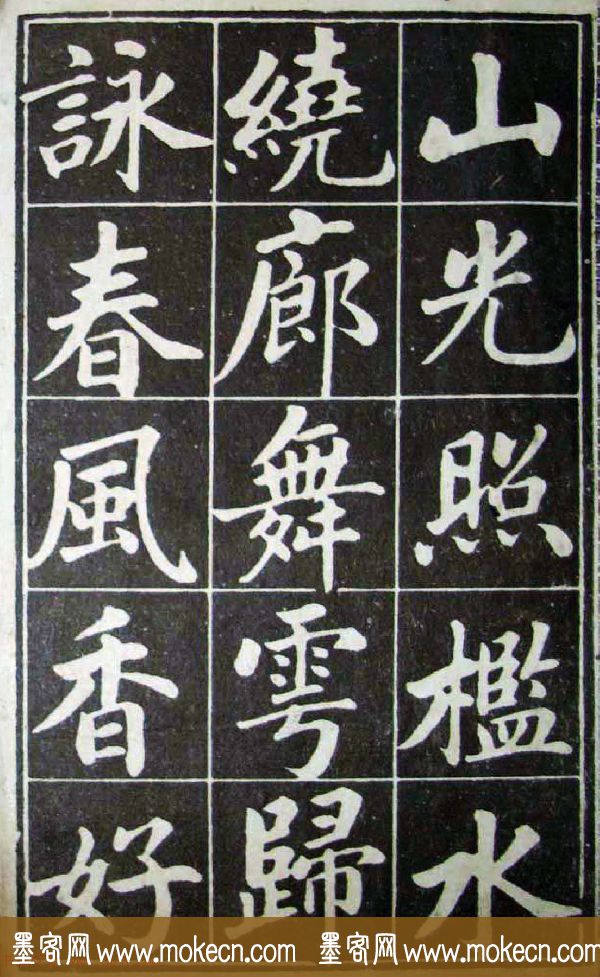 山光照檻水
繞廊舞雩歸
詠春風香好
墨客网 www.mokecn.com 墨客网 www.mokecn.com